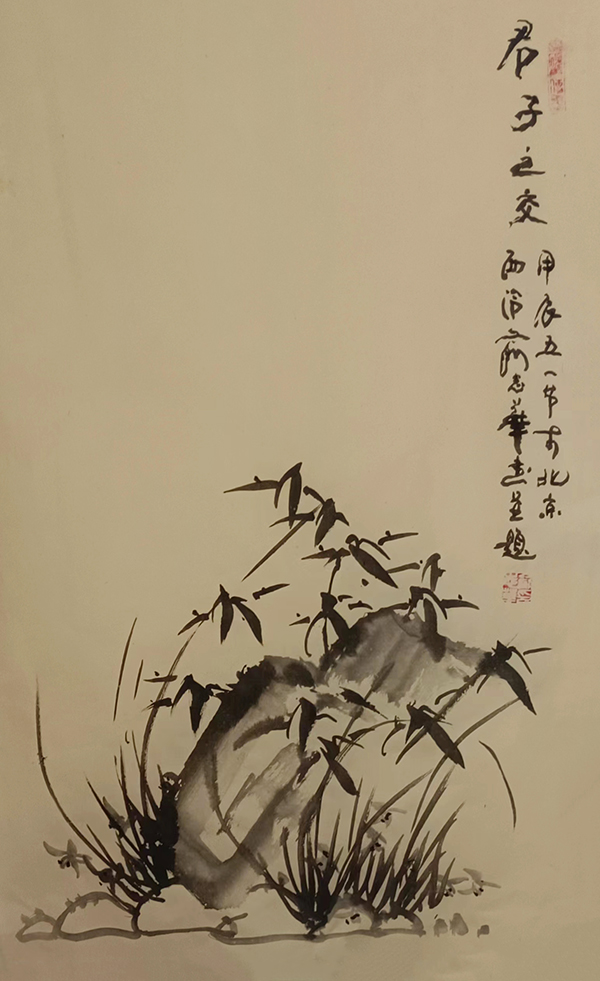 君子之交
甲辰五一节于北京
西泠志華画並题